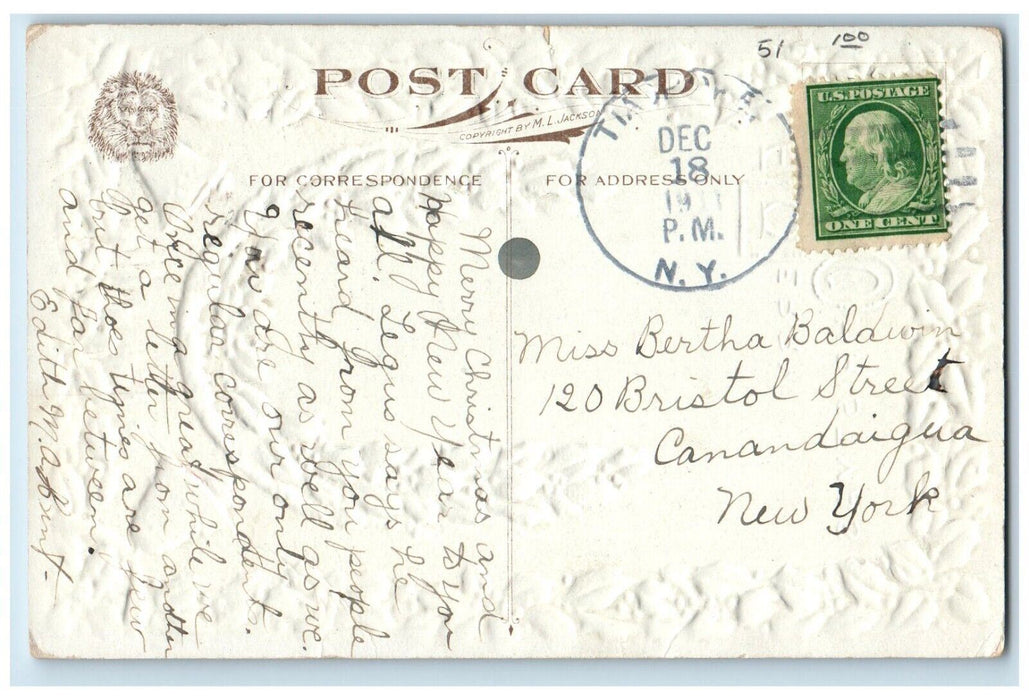 51 1.00
POST CARD
COPYRIGHT BY M. L. JACKSON
U.S. POSTAGE
ONE CENT
DEC
18
P.M.
N.Y.
FOR CORRESPONDENCE
FOR ADDRESS ONLY
Merry Christmas and
Happy New Year to you
all. Legus says he
heard from you people
recently as well as we.
You are our only
regular correspondents.
Once in a great while we
get a letter from another
but those times are few
and far between.
Edith M.
Miss Bertha Baldwin
120 Bristol Street
Canandaigua
New York